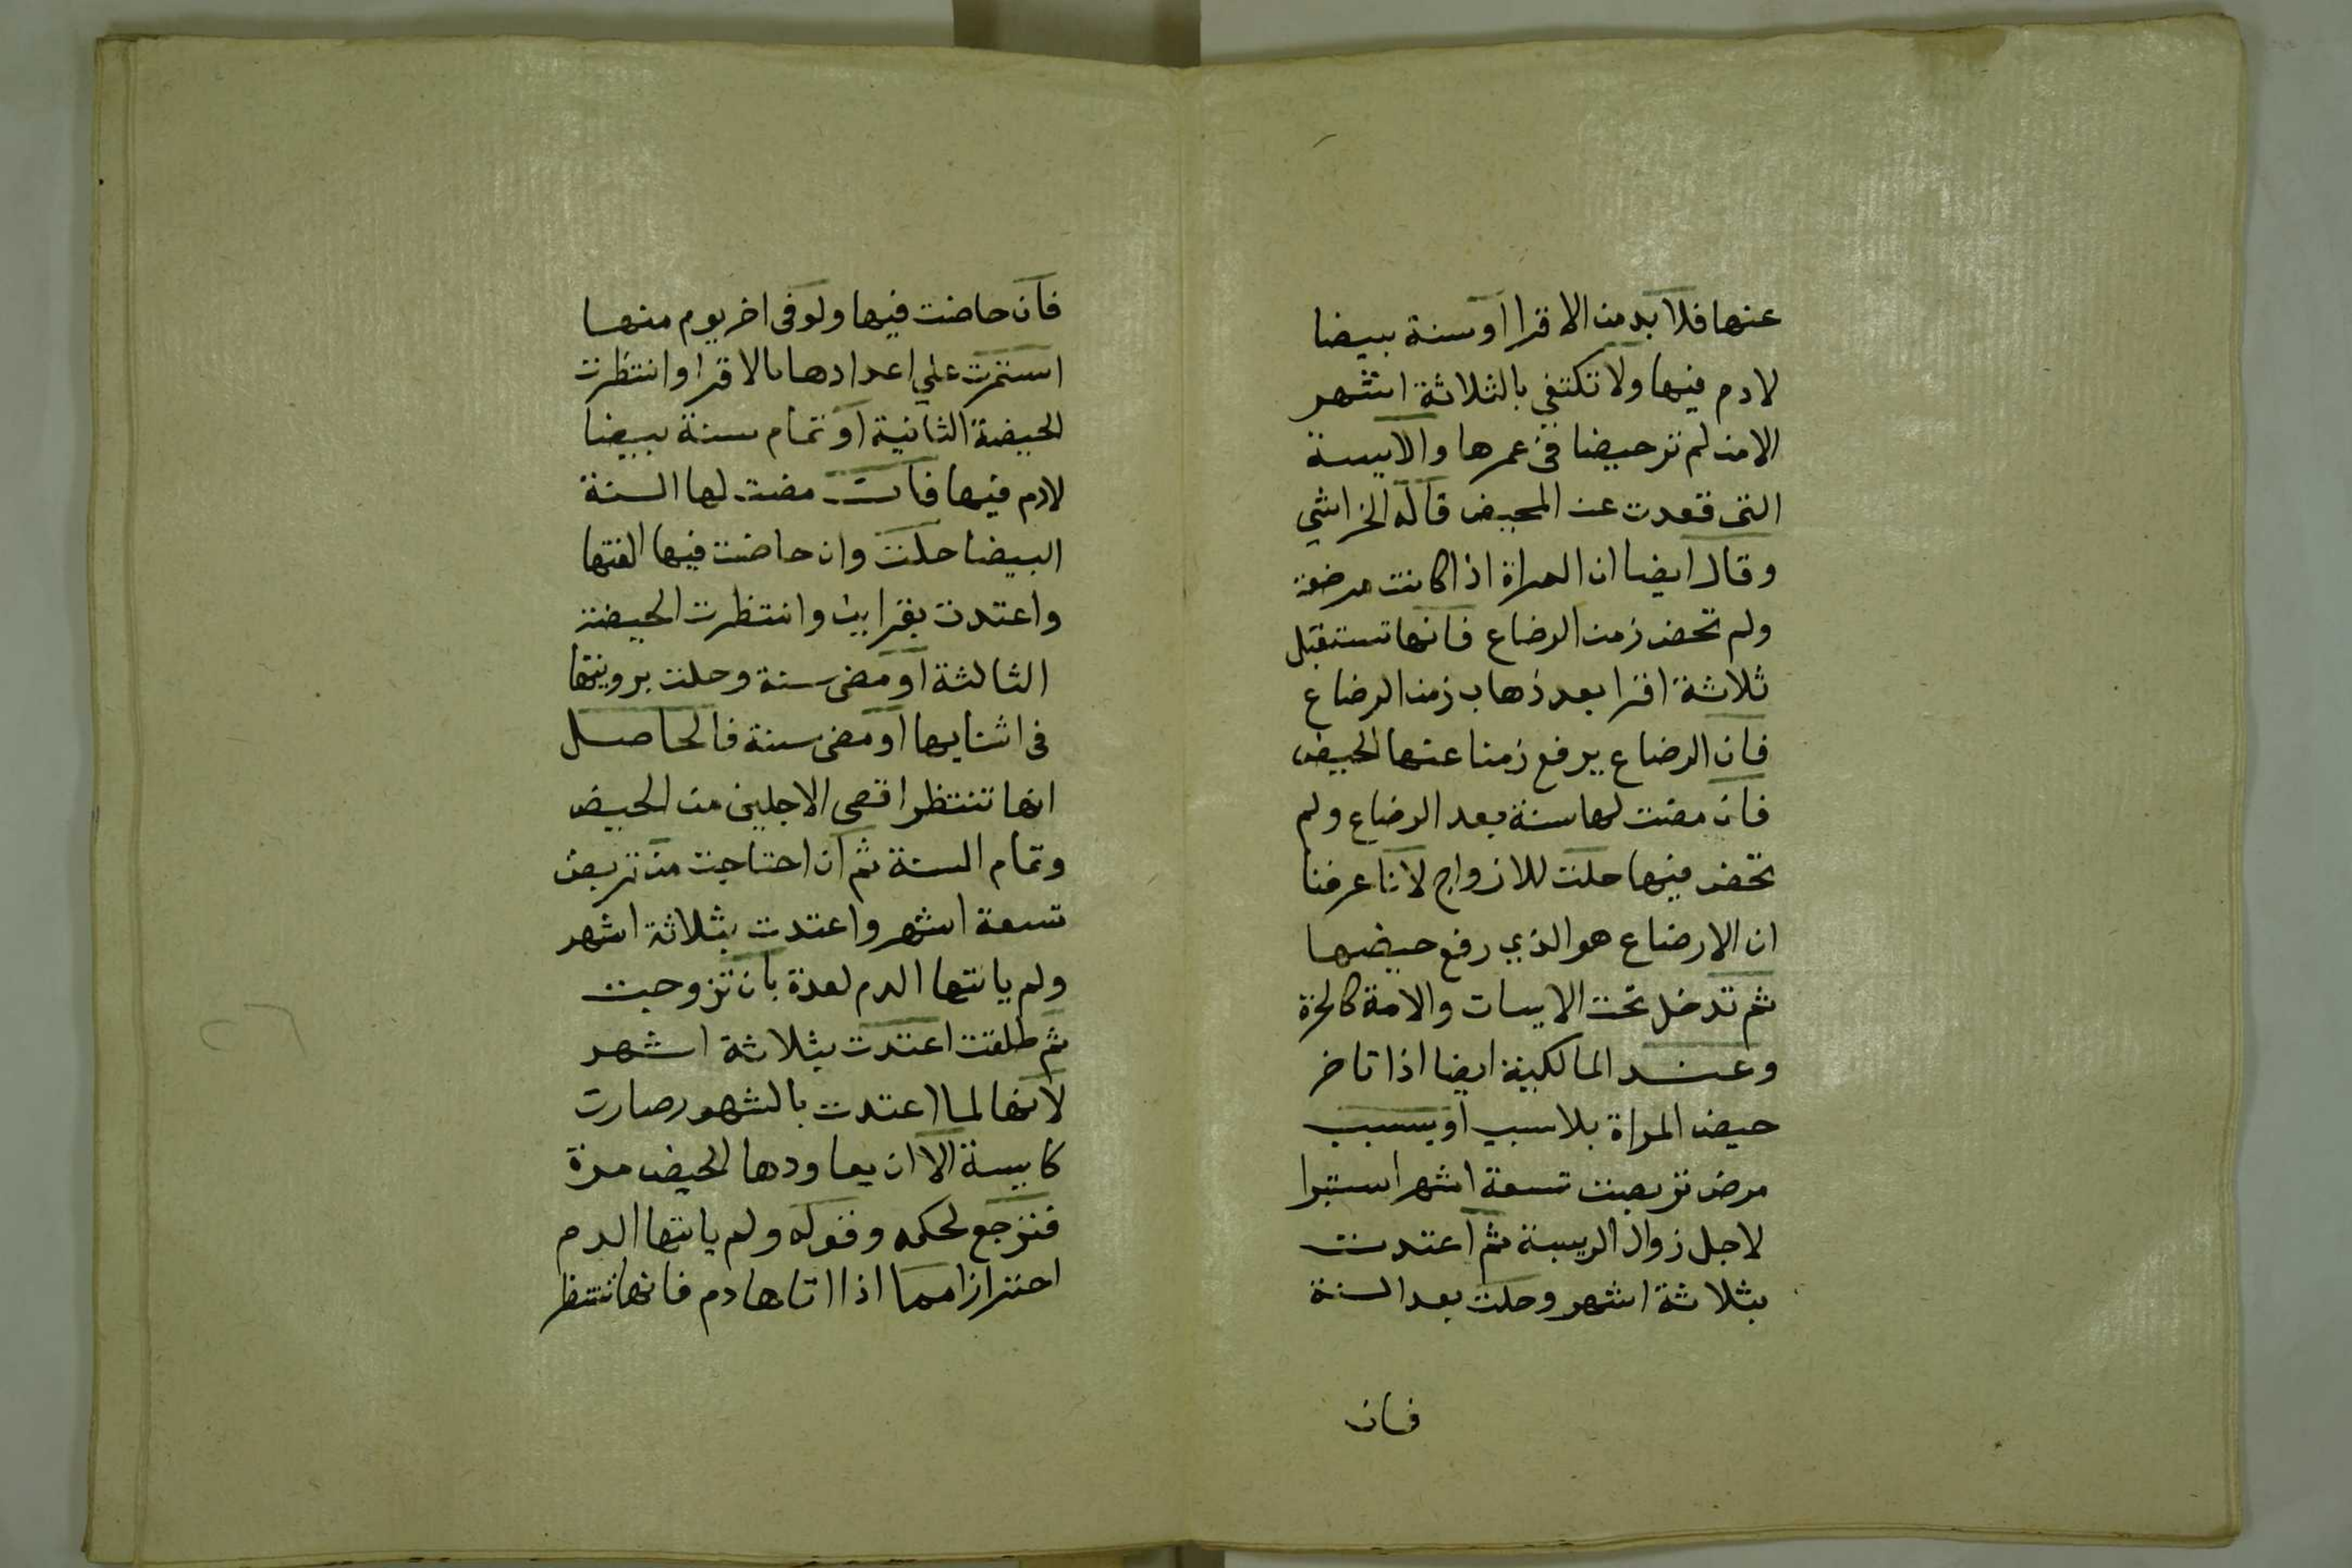 عنها فلا بد من الاقرا او سنة بيضا
لا دم فيها ولا تكتفي بالثلاثة اشهر
الا من لم تر حيضا في عمرها والايسة
التى قعدت عن المحيض قاله الخراشي
وقال ايضا ان المراة اذا كانت مرضعة
ولم تحض زمن الرضاع فانها تستقبل
ثلاثة اقرا بعد ذهاب زمن الرضاع
فان الرضاع يرفع زمنا عنها الحيض
فان مضت لها سنة بعد الرضاع ولم
تحض فيها حلت للازواج لانا عرفنا
ان الارضاع هو الذي رفع حيضها
ثم تدخل تحت الايسات والامة كالحرة
وعند المالكية ايضا اذا تاخر
حيض المراة بلا سبب او بسبب
مرض تربصت تسعة اشهر استبرا
لاجل زوال الريبة ثم اعتدت
بثلاثة اشهر وحلت بعد السنة
فان
فان حاضت فيها ولو فى اخر يوم منها
استمرت علي اعدادها بالاقرا وانتظرت
الحيضة الثانية او تمام سنة بيضا
لا دم فيها فان مضت لها السنة
البيضا حلت وان حاضت فيها الغتها
واعتدت بقرايين وانتظرت الحيضة
الثالثة او مضى سنة وحلت برويتها
فى اثنايها او مضى سنة فالحاصل
انها تنتظر اقصى الاجلين من الحيض
وتمام السنة ثم ان احتاجت من تربصت
تسعة اشهر واعتدت بثلاثة اشهر
ولم ياتها الدم لعدة بان تزوجت
ثم طلقت اعتدت بثلاثة اشهر
لانها لما اعتدت بالشهور صارت
كايسة الا ان يعاودها الحيض مرة
فترجع لحكمه وقوله ولم ياتها الدم
احترازا مما اذا اتاها دم فانها تنتظر